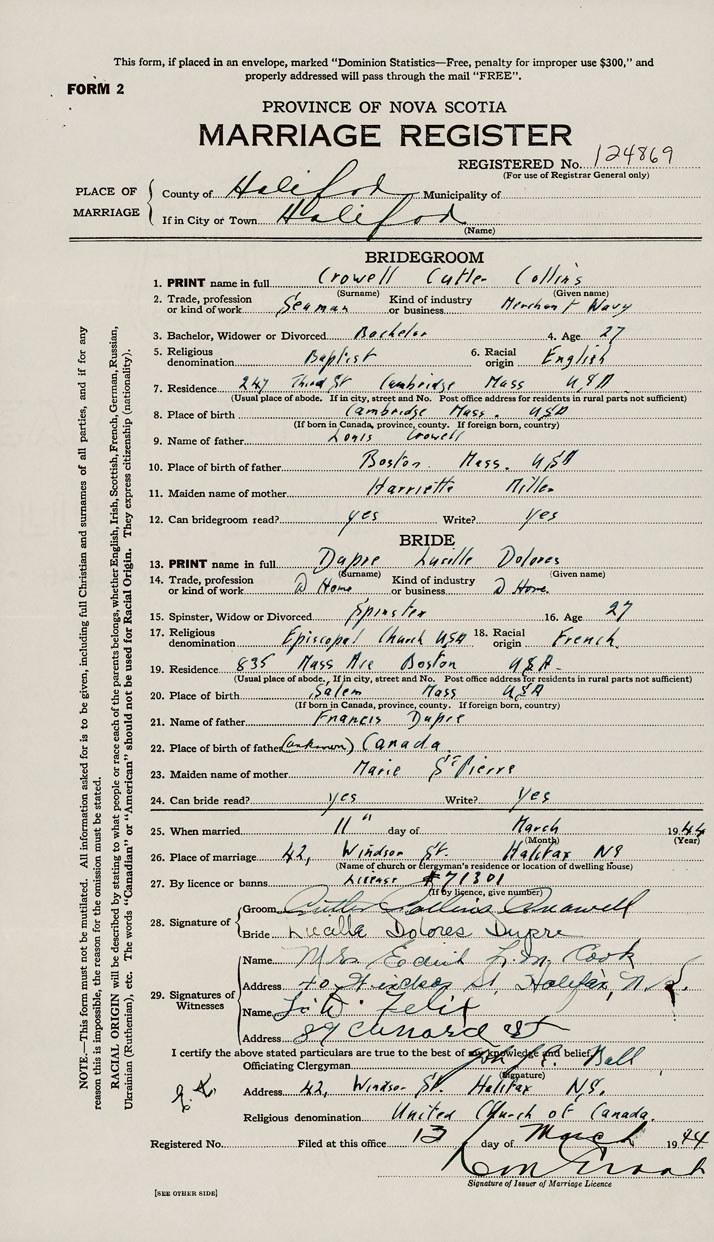 This form, if placed in an envelope, marked "Dominion Statistics—Free, penalty for improper use $300," and
properly addressed will pass through the mail "FREE".
FORM 2
PROVINCE OF NOVA SCOTIA
MARRIAGE REGISTER
REGISTERED No. 124869
(For use of Registrar General only)
PLACE OF MARRIAGE
County of Halifax Municipality of
If in City or Town Halifax
(Name)
BRIDEGROOM
1. PRINT name in full Crowell Cutler Collins
(Surname) (Given name)
2. Trade, profession or kind of work Seaman Kind of industry or business Merchant Navy
3. Bachelor, Widower or Divorced Bachelor 4. Age 27
5. Religious denomination Baptist 6. Racial origin English
7. Residence 247 Third St Cambridge Mass USA
(Usual place of abode. If in city, street and No. Post office address for residents in rural parts not sufficient)
8. Place of birth Cambridge Mass. USA
(If born in Canada, province, county. If foreign born, country)
9. Name of father Louis Crowell
10. Place of birth of father Boston. Mass. USA
11. Maiden name of mother Harriette Miller
12. Can bridegroom read? yes Write? yes
BRIDE
13. PRINT name in full Dupre Lucille Dolores
(Surname) (Given name)
14. Trade, profession or kind of work @ Home Kind of industry or business @ Home.
15. Spinster, Widow or Divorced Spinster 16. Age 27
17. Religious denomination Episcopal Church USA 18. Racial origin French.
19. Residence 835 Mass Ave Boston USA
(Usual place of abode. If in city, street and No. Post office address for residents in rural parts not sufficient)
20. Place of birth Salem Mass USA
(If born in Canada, province, county. If foreign born, country)
21. Name of father Francis Dupre
22. Place of birth of father (unknown) Canada
23. Maiden name of mother Marie St Pierre
24. Can bride read? yes Write? yes
25. When married 11th day of March 1944
(Month) (Year)
26. Place of marriage 42, Windsor St. Halifax NS
(Name of church or clergyman's residence or location of dwelling house)
27. By licence or banns License #71301
(If by licence, give number)
28. Signature of
Groom Cutler Collins Crowell
Bride Lucille Dolores Dupre
29. Signatures of Witnesses
Name Mrs Edith L. M. Cook
Address 40 Windsor St, Halifax, N.S.
Name L. W. Felix
Address 89 Cunard St
I certify the above stated particulars are true to the best of my knowledge and belief.
Officiating Clergyman Ball
(Signature)
Address 42, Windsor St. Halifax NS.
Religious denomination United Church of Canada.
Registered No. Filed at this office 13 day of March 1944
Signature of Issuer of Marriage Licence
[SEE OTHER SIDE]
NOTE.—This form must not be mutilated. All information asked for is to be given, including full Christian and surnames of all parties, and if for any
reason this is impossible, the reason for the omission must be stated.
RACIAL ORIGIN will be described by stating to what people or race each of the parents belongs, whether English, Irish, Scottish, French, German, Russian,
Ukrainian (Ruthenian), etc. The words "Canadian" or "American" should not be used for Racial Origin. They express citizenship (nationality).